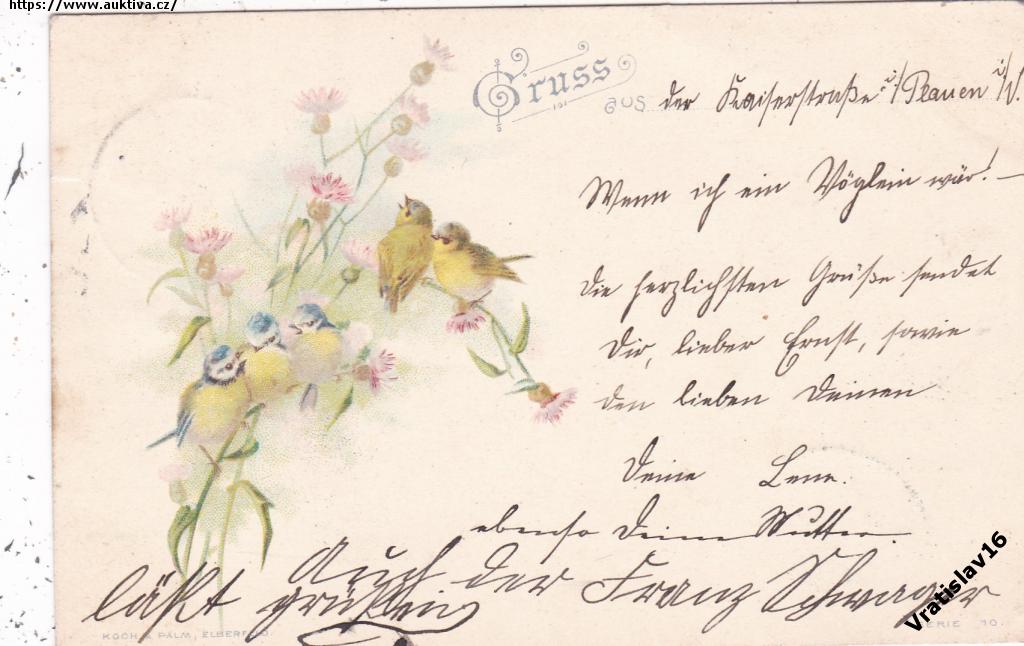 https://www.auktiva.cz/
Gruss
aus der Kaiserstraße i/Plauen i/V.
Wenn ich ein Vöglein wär! –
Die herzlichsten Grüße sendet
Dir, lieber Ernst, sowie
den lieben Deinen
Deine Lene.
ebenso Deine Mutter.
Auch der Franz Schwager
läßt grüßen
KOCH & PALM, ELBERFELD.
SERIE 10.
Vratislav16